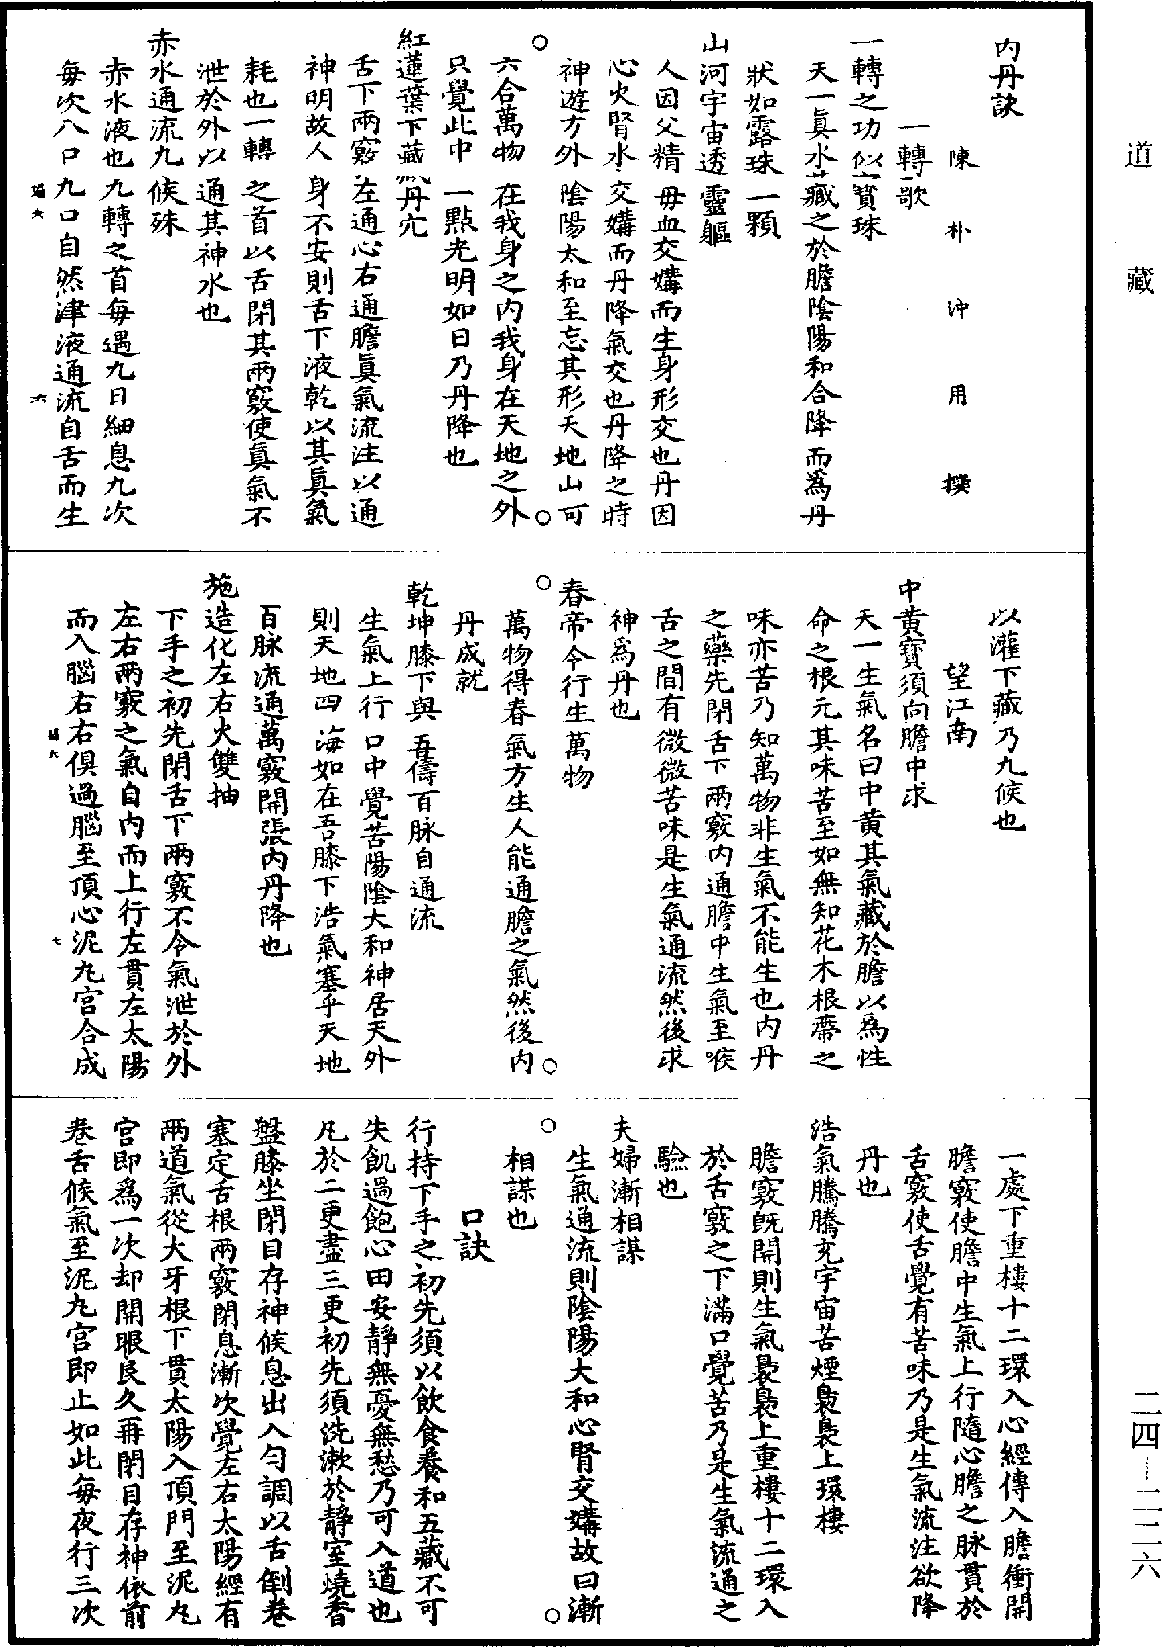 道藏
內丹訣
陳朴沖用撰
一轉歌
一轉之功似寶珠
天一眞水藏之於膽陰陽和合降而爲丹
狀如露珠一顆
山河宇宙透靈軀
人因父精母血交媾而生身形交也丹因
心火腎水交媾而丹降氣交也丹降之時
神遊方外陰陽太和至忘其形天地山可
六合萬物在我身之內我身在天地之外
只覺此中一點光明如日乃丹降也
紅蓮葉下藏丹宂
舌下兩竅左通心右通膽眞氣流注以通
神明故人身不安則舌下液乾以其眞氣
耗也一轉之首以舌閉其兩竅使眞氣不
泄於外以通其神水也
赤水通流九候殊
赤水液也九轉之首每遇九日細息九次
每次八口九口自然津液通流自舌而生
以灌下藏乃九候也
望江南
中黃寶須向膽中求
天一生氣名曰中黃其氣藏於膽以爲性
命之根元其味苦至如無知花木根蔕之
味亦苦乃知萬物非生氣不能生也內丹
之藥先閉舌下兩竅內通膽中生氣至喉
舌之間有微微苦味是生氣通流然後求
神爲丹也
春帝令行生萬物
萬物得春氣方生人能通膽之氣然後內
丹成就
乾坤膝下與吾儔百脉自通流
生氣上行口中覺苦陽陰大和神居天外
則天地四海如在吾膝下浩氣塞乎天地
百脉流通萬竅開張內丹降也
施造化左右火雙抽
下手之初先閉舌下兩竅不令氣泄於外
左右兩竅之氣自內而上行左貫左太陽
而入腦右右俱過腦至頂心泥丸宮合成
一處下重樓十二環入心經傳入膽衝開
膽竅使膽中生氣上行隨心膽之脉貫於
舌竅使舌覺有苦味乃是生氣流注欲降
丹也
浩氣騰騰充宇宙苦煙裊裊上環樓
膽竅旣開則生氣裊裊上重樓十二環入
於舌竅之下滿口覺苦乃是生氣流通之
驗也
夫婦漸相謀
生氣通流則陰陽大和心腎交媾故曰漸
相謀也
口訣
行持下手之初先須以飲食養和五藏不可
失飢過飽心田安靜無憂無愁乃可入道也
凡於二更盡三更初先須洗漱於靜室燒香
盤膝坐閉目存神候息出入勻調以舌倒卷
塞定舌根兩竅閉息漸次覺左右太陽經有
兩道氣從大牙根下貫太陽入頂門至泥丸
宮即爲一次却開眼良久再閉目存神依前
卷舌候氣至泥丸宮即止如此每夜行三次
二四—二二六